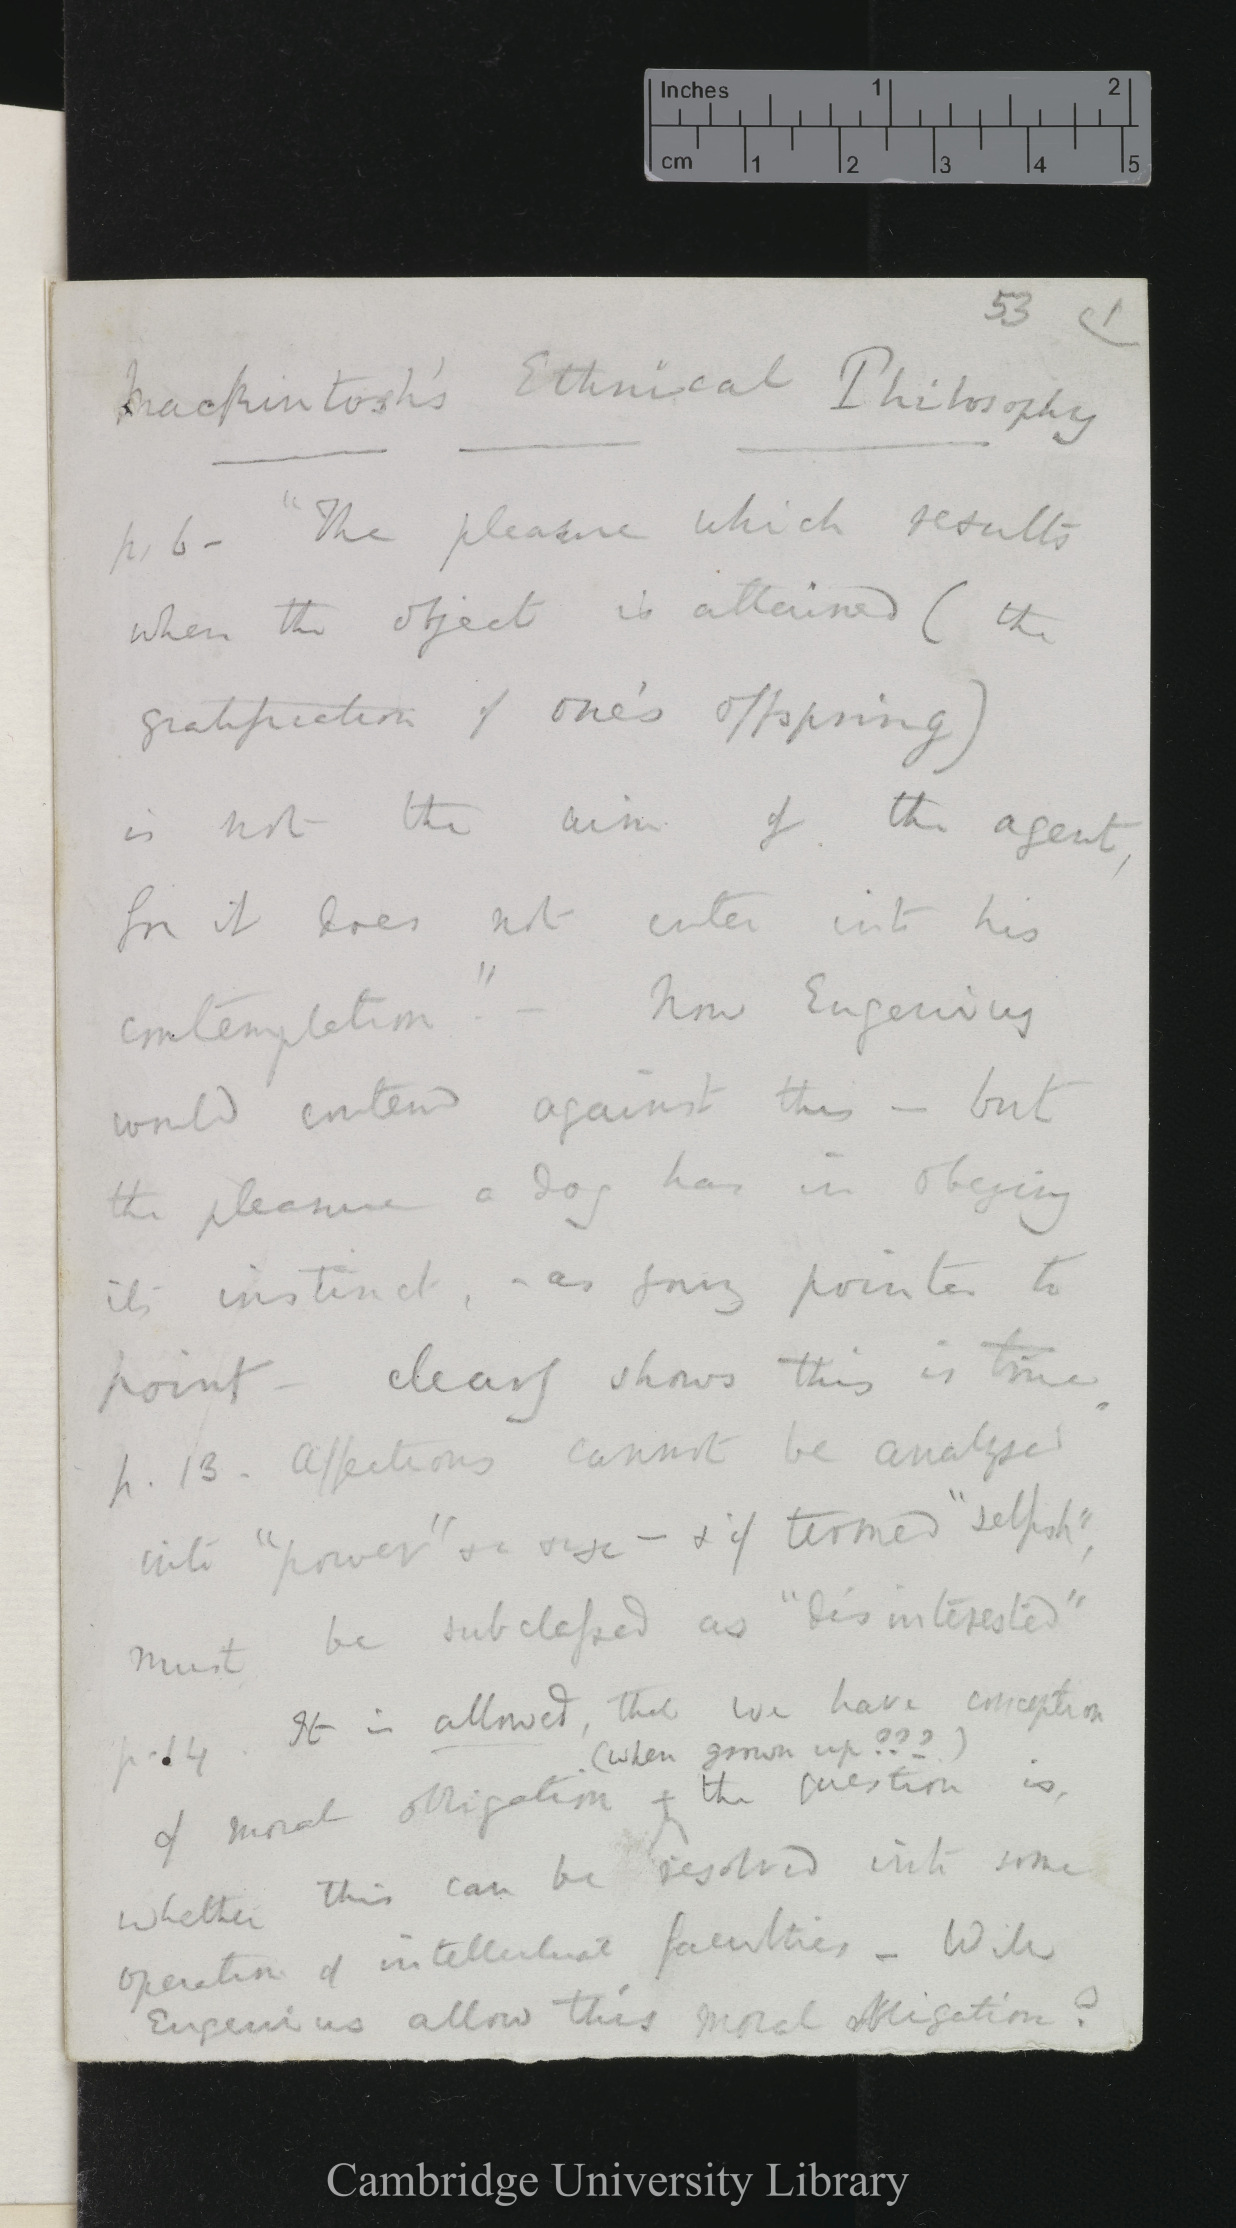 Inches 1 2
cm 1 2 3 4 5
53
Mackintosh's Ethnical Philosophy
p. 6 – "The pleasure which results
when the object is attained ( the
gratification of one's offspring)
is not the aim of the agent,
for it does not enter into his
contemplation". – Now Eugenius
would contend against this – but
the pleasure a dog has in obeying
its instinct, – as young pointer to
point – clearly shows this is true.
p. 13. Affections cannot be analysed
into "power" &c &c – & if termed "selfish",
must be subclassed as "disinterested"
p. 14. It is allowed, that we have conception
(when grown up ???)
of moral obligation & the question is,
whether this can be resolved into some
operation of intellectual faculties – Will
Eugenius allow this moral obligation?
Cambridge University Library